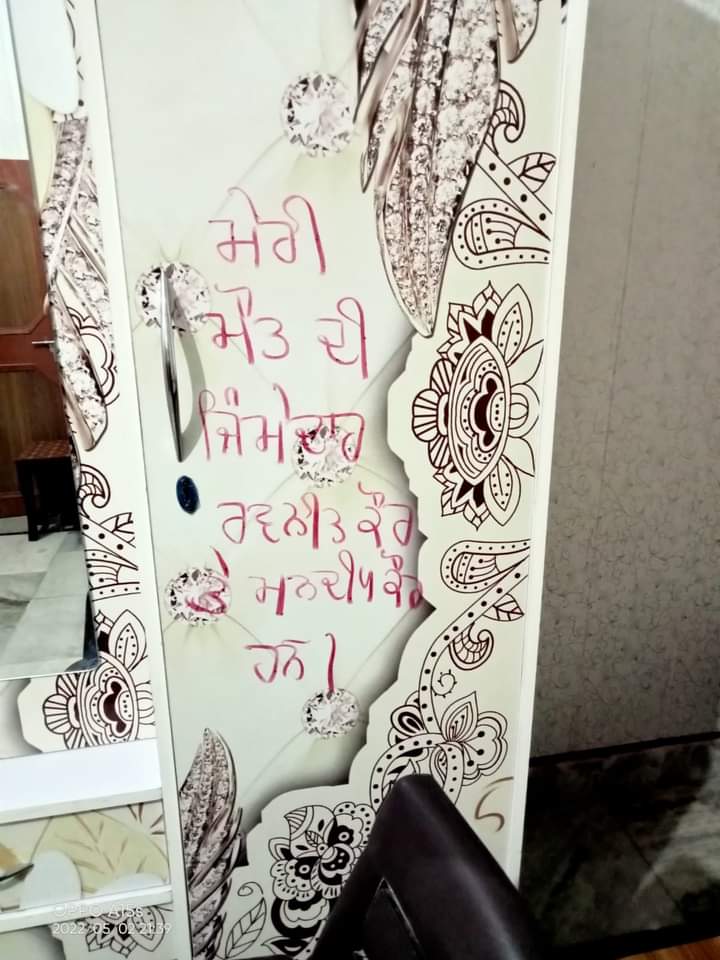 ਮੇਰੀ
ਮੌਤ ਦੀ
ਜਿੰਮੇਦਾਰ
ਰਵਨੀਤ ਕੌਰ
ਤੇ ਮਨਦੀਪ ਕੌਰ
ਹਨ।
OPPO A15s
2022/05/02 21:39